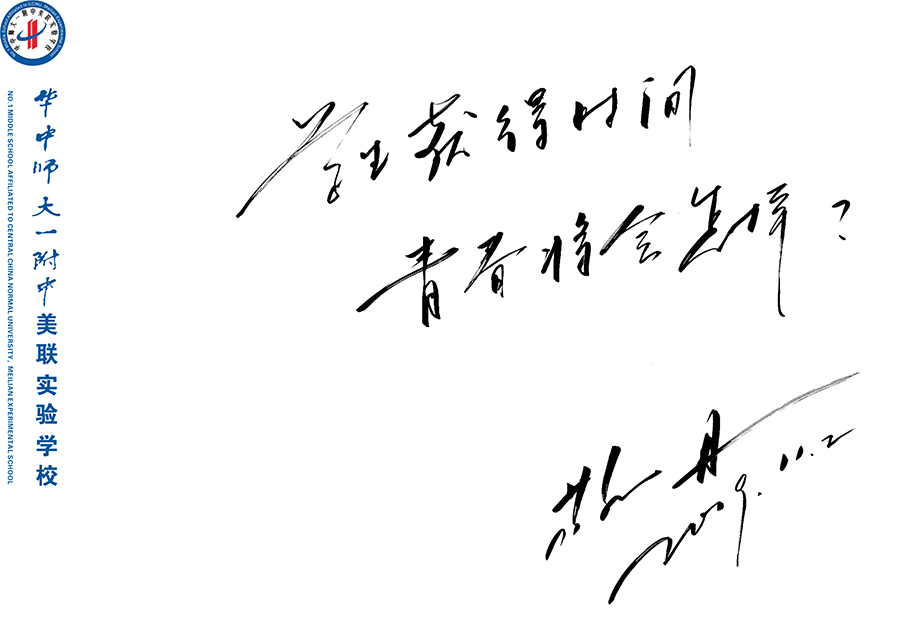 华中师大一附中美联实验学校
NO.1 MIDDLE SCHOOL AFFILIATED TO CENTRAL CHINA NORMAL UNIVERSITY, MEILIAN EXPERIMENTAL SCHOOL
学生获得时间
青春将会怎样？
丹
2009.11.2